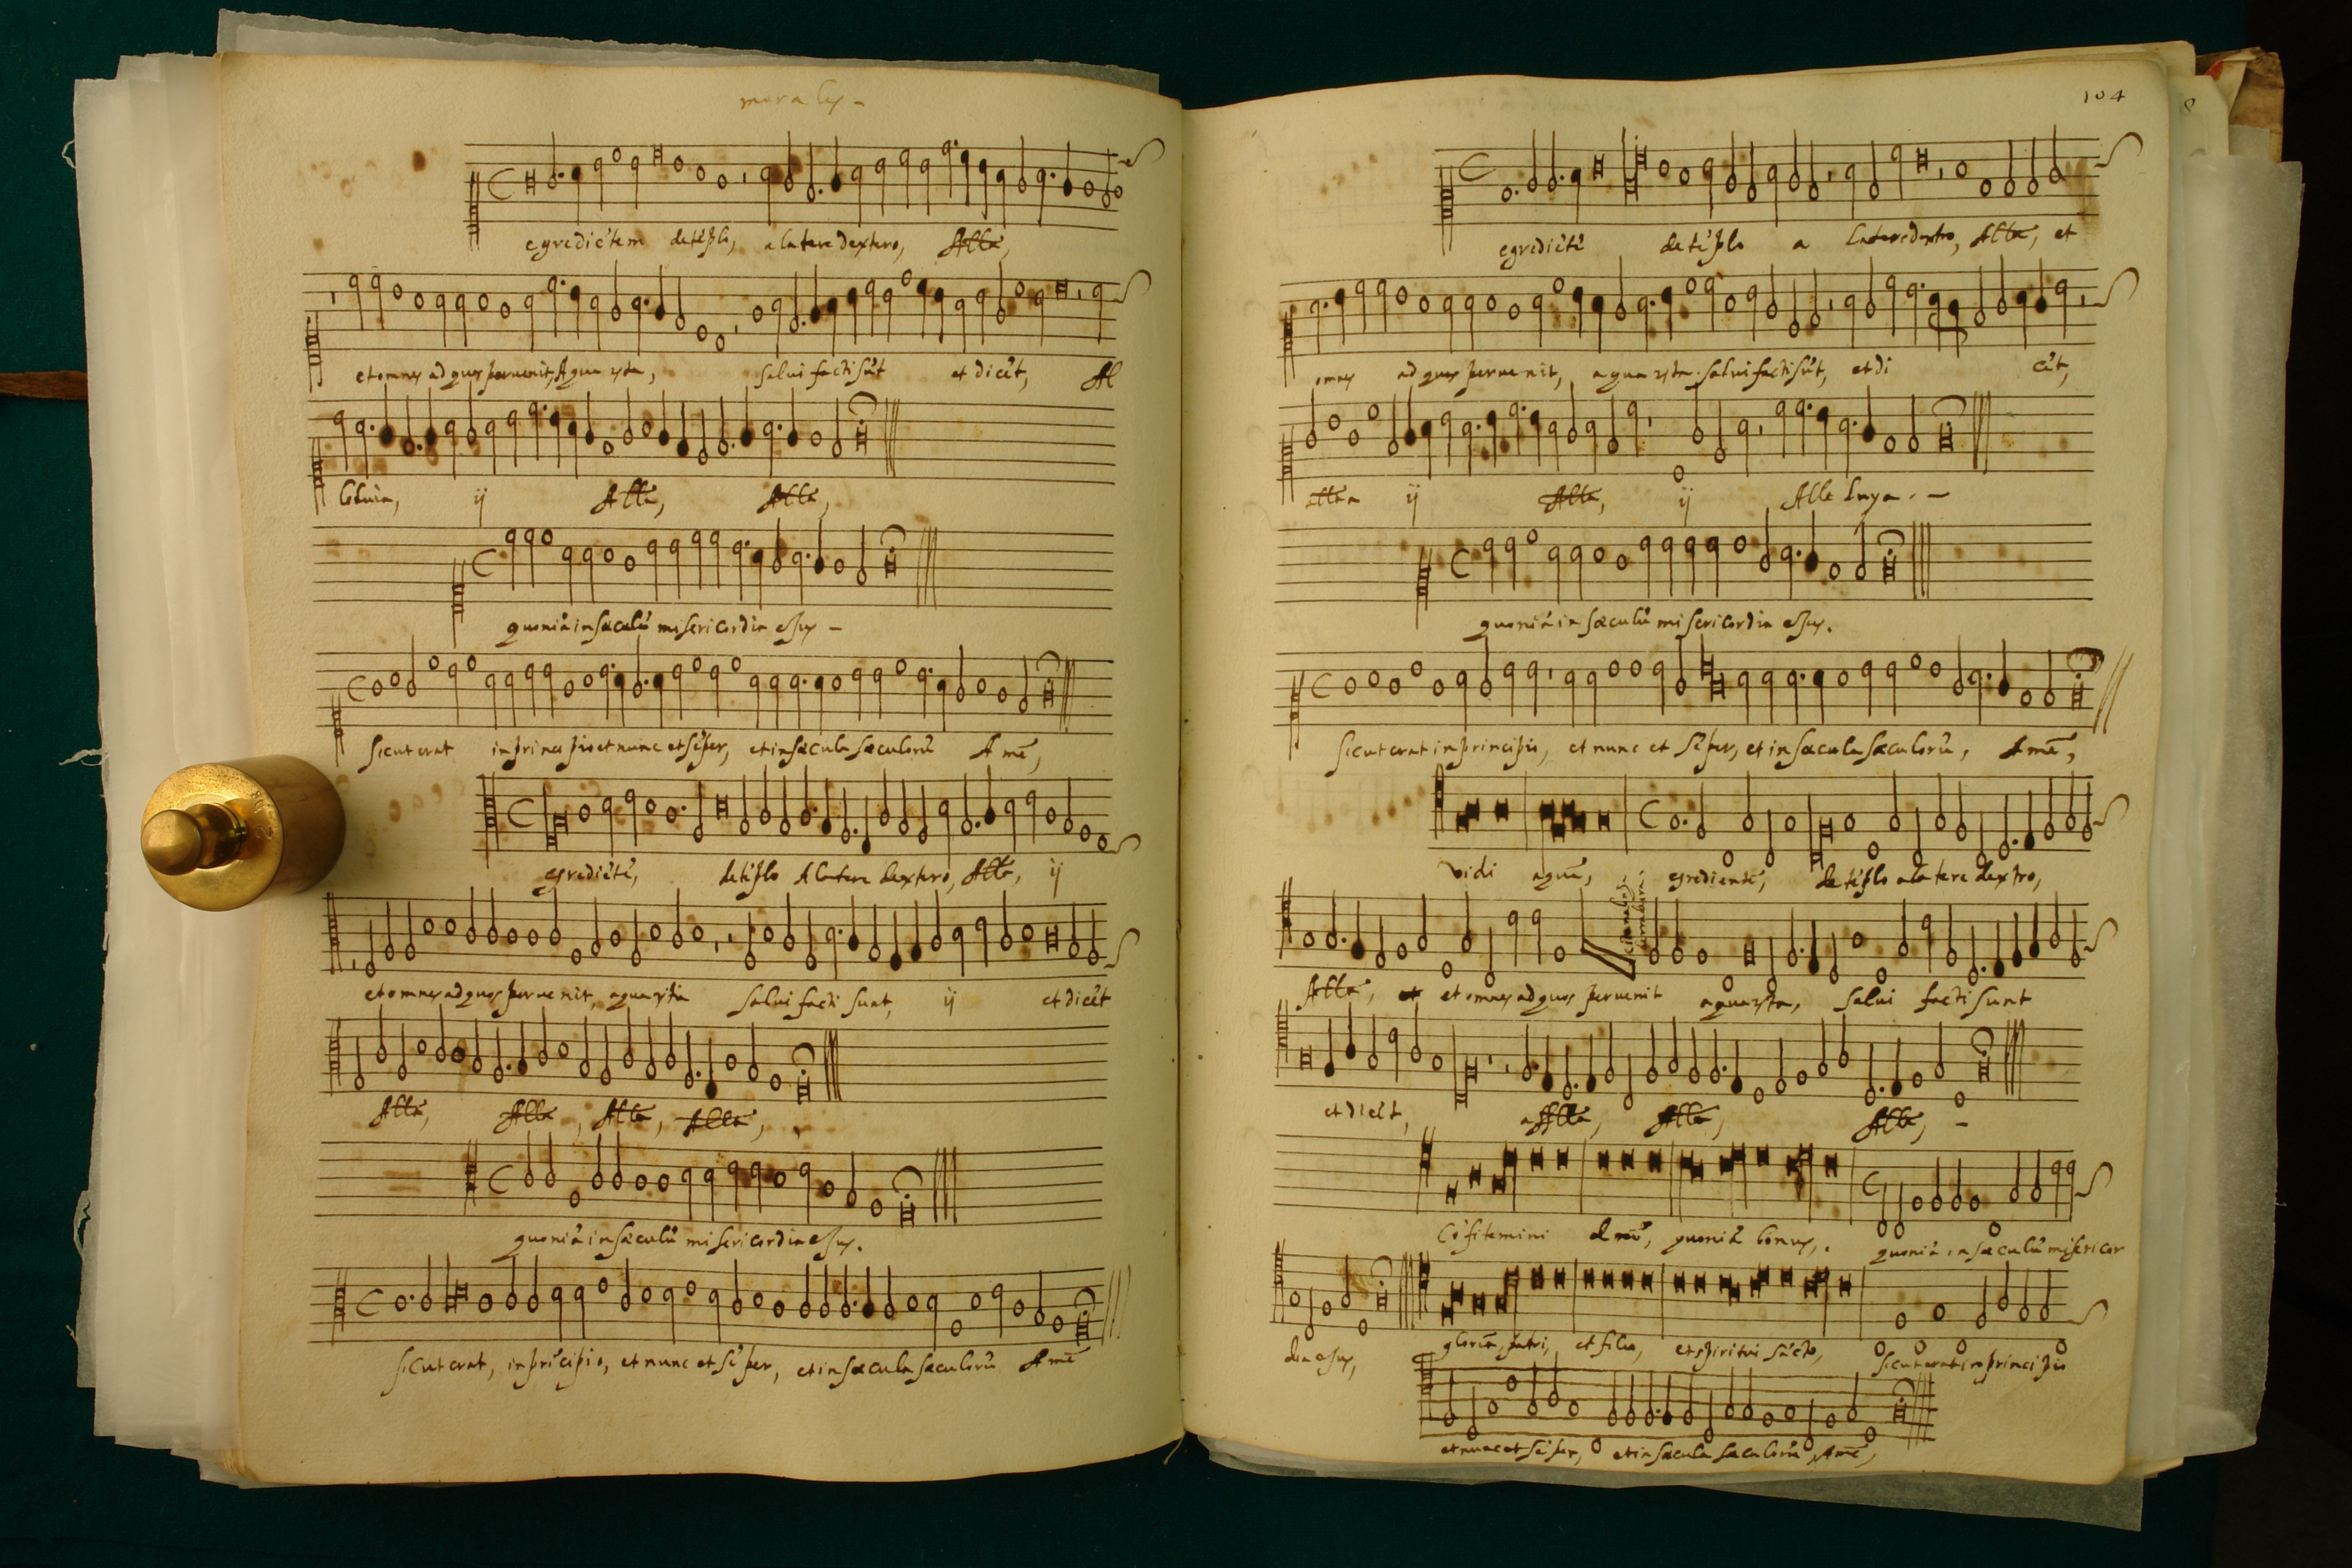 morales –
egrediẽtem detẽplo, a latere dextero, Alla,
et omnes ad quos peruenit, Aqua ista, salui facti sũt et dicẽt, Al
leluia, ij Alla, Alla,
quoniã in sæculũ misericordia ejus –
Sicut erat in principio et nunc et sẽper, et in sæcula sæculorũ Amẽ,
egrediẽtẽ, detẽplo A latere dextero, Alla, ij
et omnes ad quos peruenit, aqua ista salui facti sunt, ij et dicẽt
Alla, Alla, Alla, Alla,
quoniã in sæculũ misericordia ejus.
Sicut erat, in prĩcipio, et nunc et sẽper, et in sæcula sæculorũ Amẽ
104
egrediẽtẽ de tẽplo a latere dextro, Alla, et
omnes ad quos peruenit, aqua ista. salui facti sũt, et di cẽt,
alla ij Alla, ij Alle luya. –
quoniã in sæculũ misericordia ejus.
Sicut erat in principio, et nunc et sẽper, et in sæcula sæculorũ, Amẽ,
vidi aquã, egredientẽ, de tẽplo a latere dextro,
Alla, et omnes ad quos peruenit aqua ista, salui facti sunt
et dicẽt, alla, Alla, Alla, –
Cõfitemini dnõ, quoniã bonus, quoniã in sæculũ misericor
dia ejus, gloria patri, et filio, et spiritui sãcto, sicut erat in principio
et nunc et sẽper, et in sæcula sæculorũ, Amẽ,